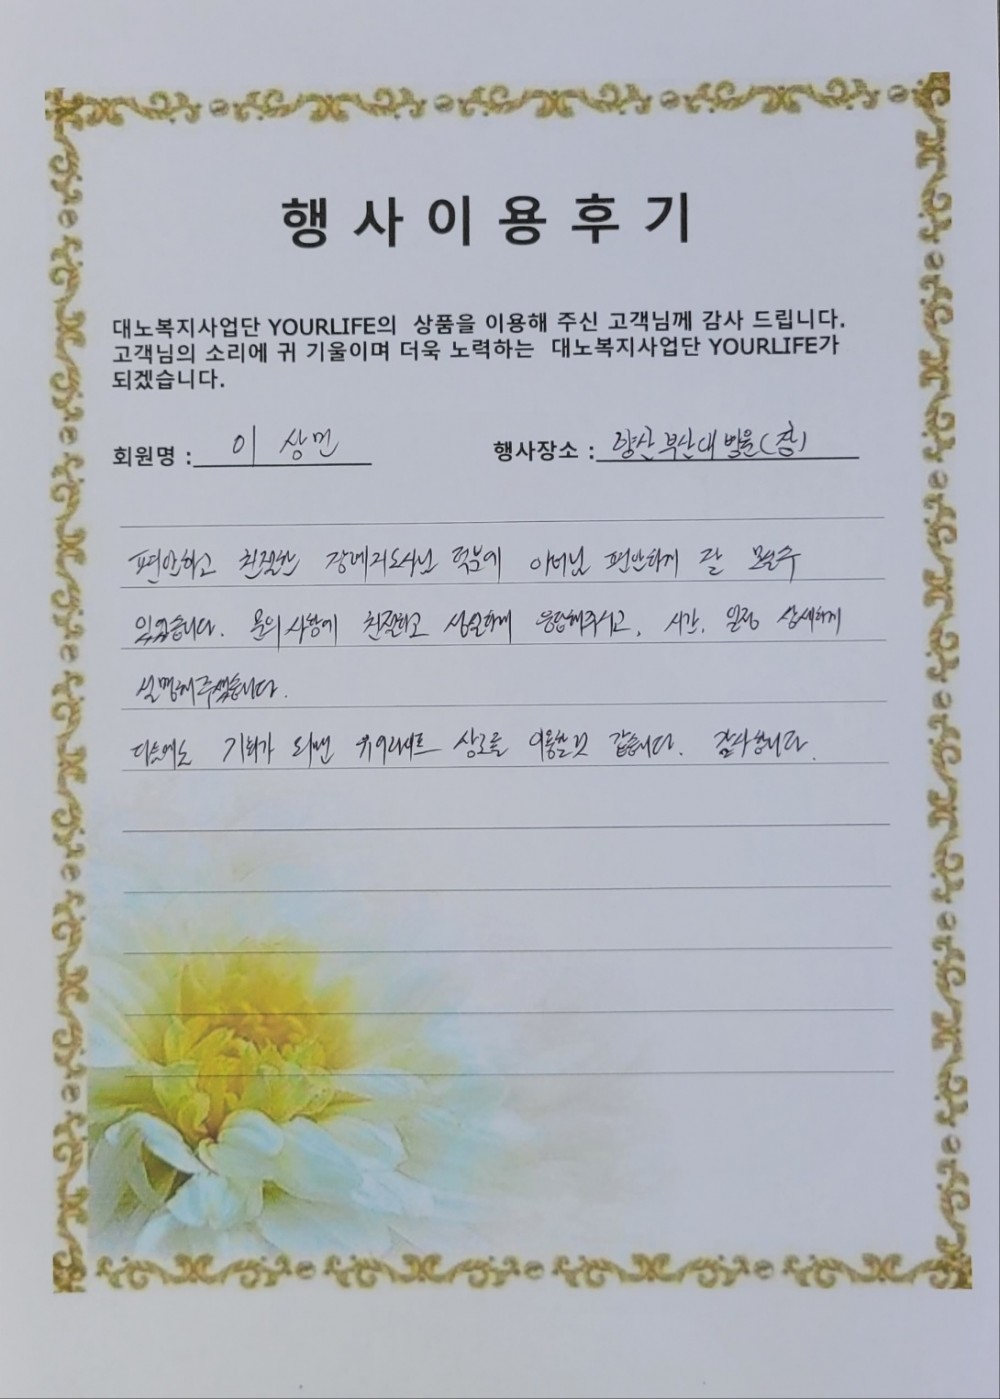 행사이용후기
대노복지사업단 YOURLIFE의 상품을 이용해 주신 고객님께 감사 드립니다.
고객님의 소리에 귀 기울이며 더욱 노력하는 대노복지사업단 YOURLIFE가
되겠습니다.
회원명 : 이상먼 행사장소 : 양산 부산대 병원
편안하고 친절한 장례지도사님 덕분에 어머님 편안하게 잘 모실수
있었습니다. 문의 사항에 친절하고 성실하게 응답해주시고, 시간, 일정 상세하게
설명해주셨습니다.
다음에도 기회가 되면 유어라이프 상조를 이용할것 같습니다. 감사합니다.